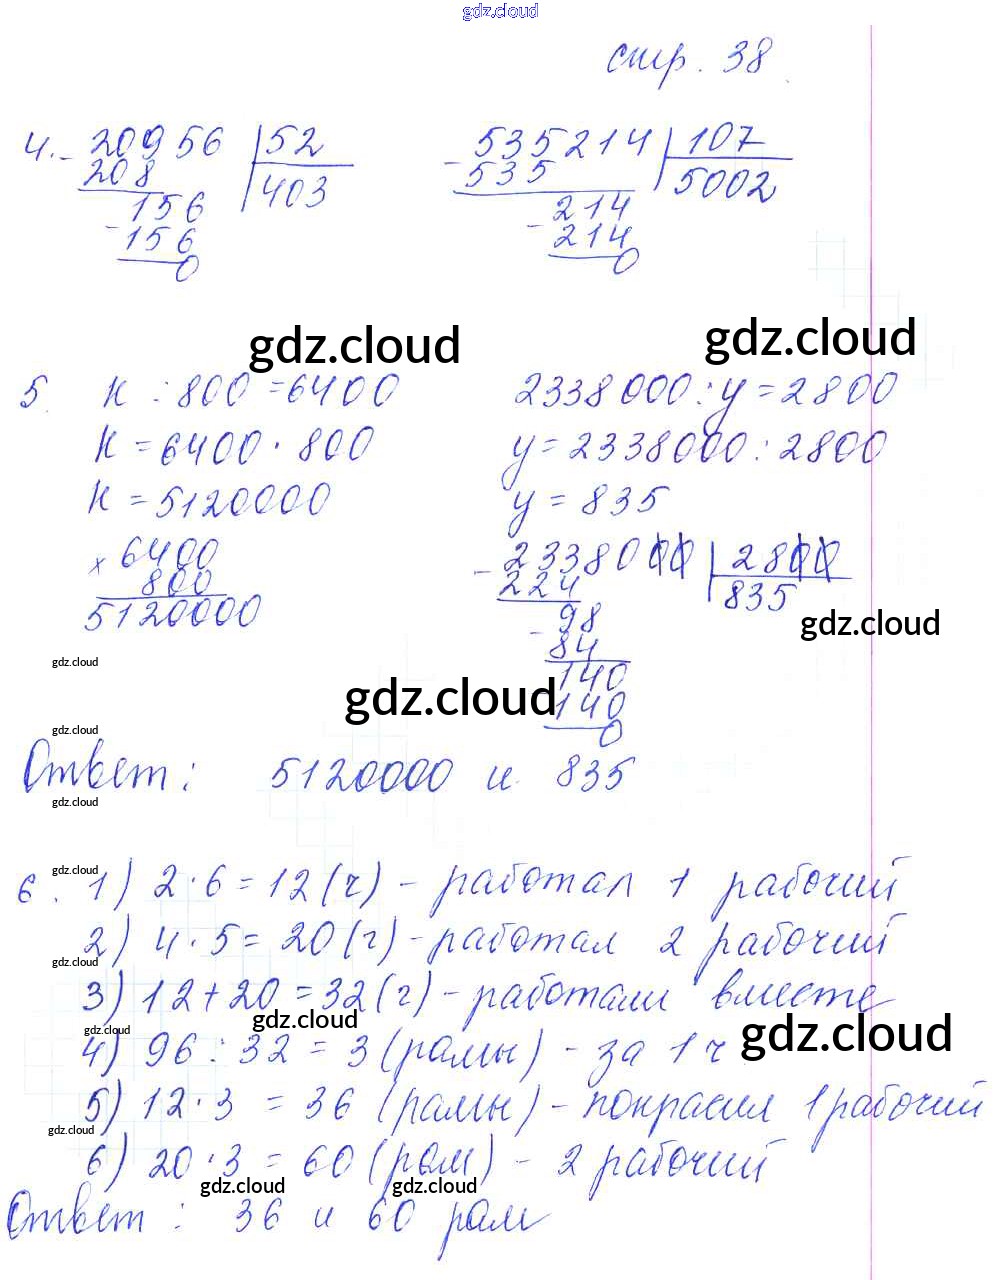 gdz.cloud
стр. 38.
4. - 20956 | 52 - 535214 | 107
208 403 535 5002
156 214
- 156 - 214
0 0
gdz.cloud gdz.cloud
5. К : 800 = 6400 2338000 : у = 2800
К = 6400 · 800 у = 2338000 : 2800
К = 5120000 у = 835
× 6400 - 2338000 | 2800
800 224 835
5120000 98 gdz.cloud
- 84
gdz.cloud 140
gdz.cloud 140
gdz.cloud 0
Ответ: 5120000 и 835
gdz.cloud
gdz.cloud
6. 1) 2 · 6 = 12 (ч) - работал 1 рабочий
2) 4 · 5 = 20 (ч) - работал 2 рабочий
gdz.cloud
3) 12 + 20 = 32 (ч) - работали вместе
gdz.cloud gdz.cloud gdz.cloud
4) 96 : 32 = 3 (рамы) - за 1 ч
5) 12 · 3 = 36 (рамы) - покрасил 1 рабочий
gdz.cloud
6) 20 · 3 = 60 (рам) - 2 рабочий
gdz.cloud gdz.cloud
Ответ: 36 и 60 рам